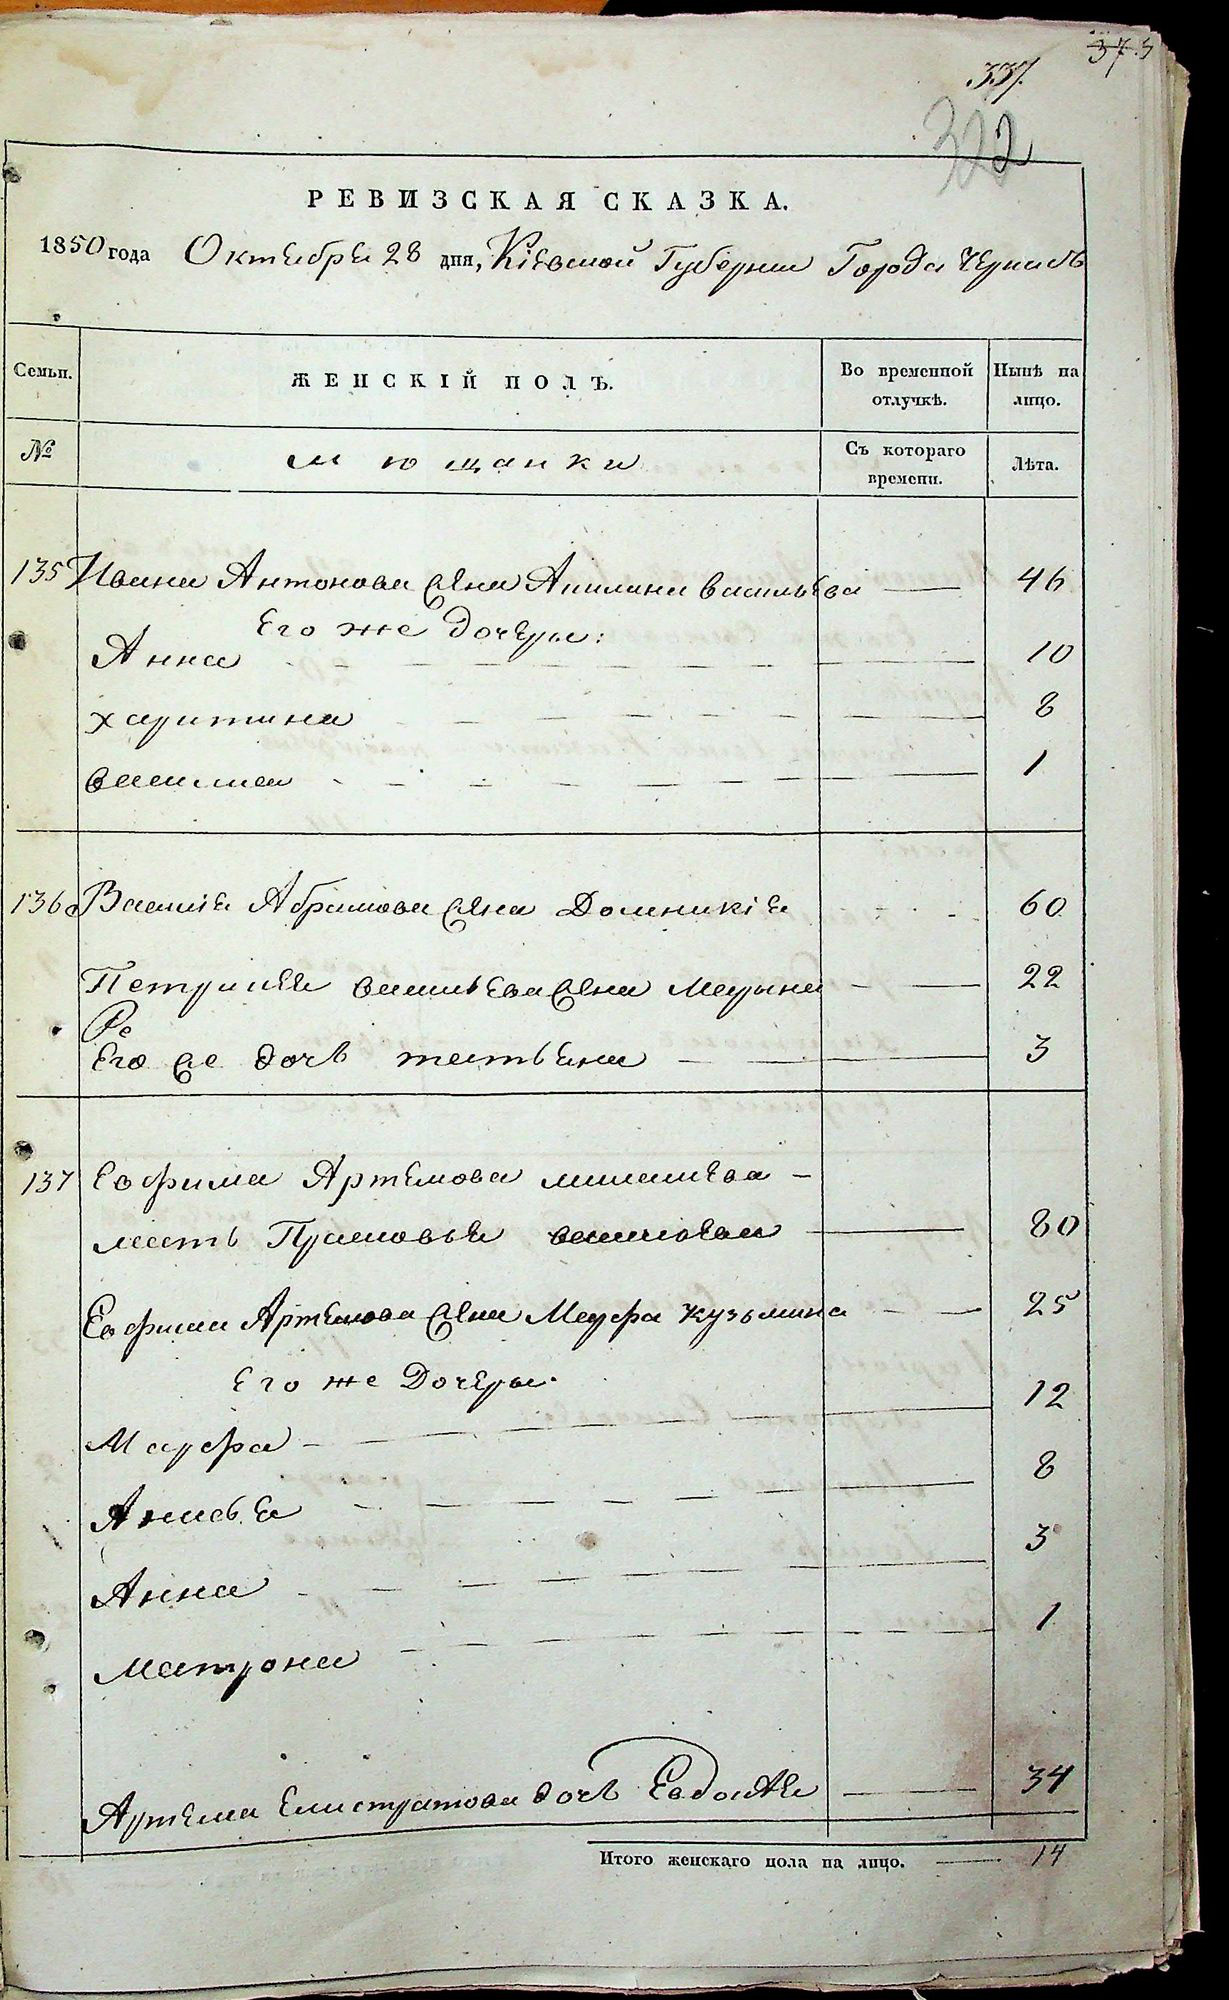 337.
322
РЕВИЗСКАЯ СКАЗКА.
1850 года Октября 28 дня, Кіевской Губерніи Города Черкасъ
Семьи. ЖЕНСКІЙ ПОЛЪ. Во временной отлучкѣ. Нынѣ на лицо.
№ мѣщанки Съ котораго времени. Лѣта.
135 Ивана Антонова жена Акилина васильева 46
Его же дочери:
Анна 10
харитина 8
василиса 1
136 Василія Абрамова жена Домникія 60
васильева жена Марина 22
Его же дочь татьяна 3
137 Евфима Артемова
мать васильева 80
Евфима Артемова жена Марфа кузьмина 25
Его же Дочери:
Марфа 12
Анисья 8
Анна 3
Матрона 1
Артема Елистратова дочь Евдокія 34
Итого женскаго пола на лицо. 14